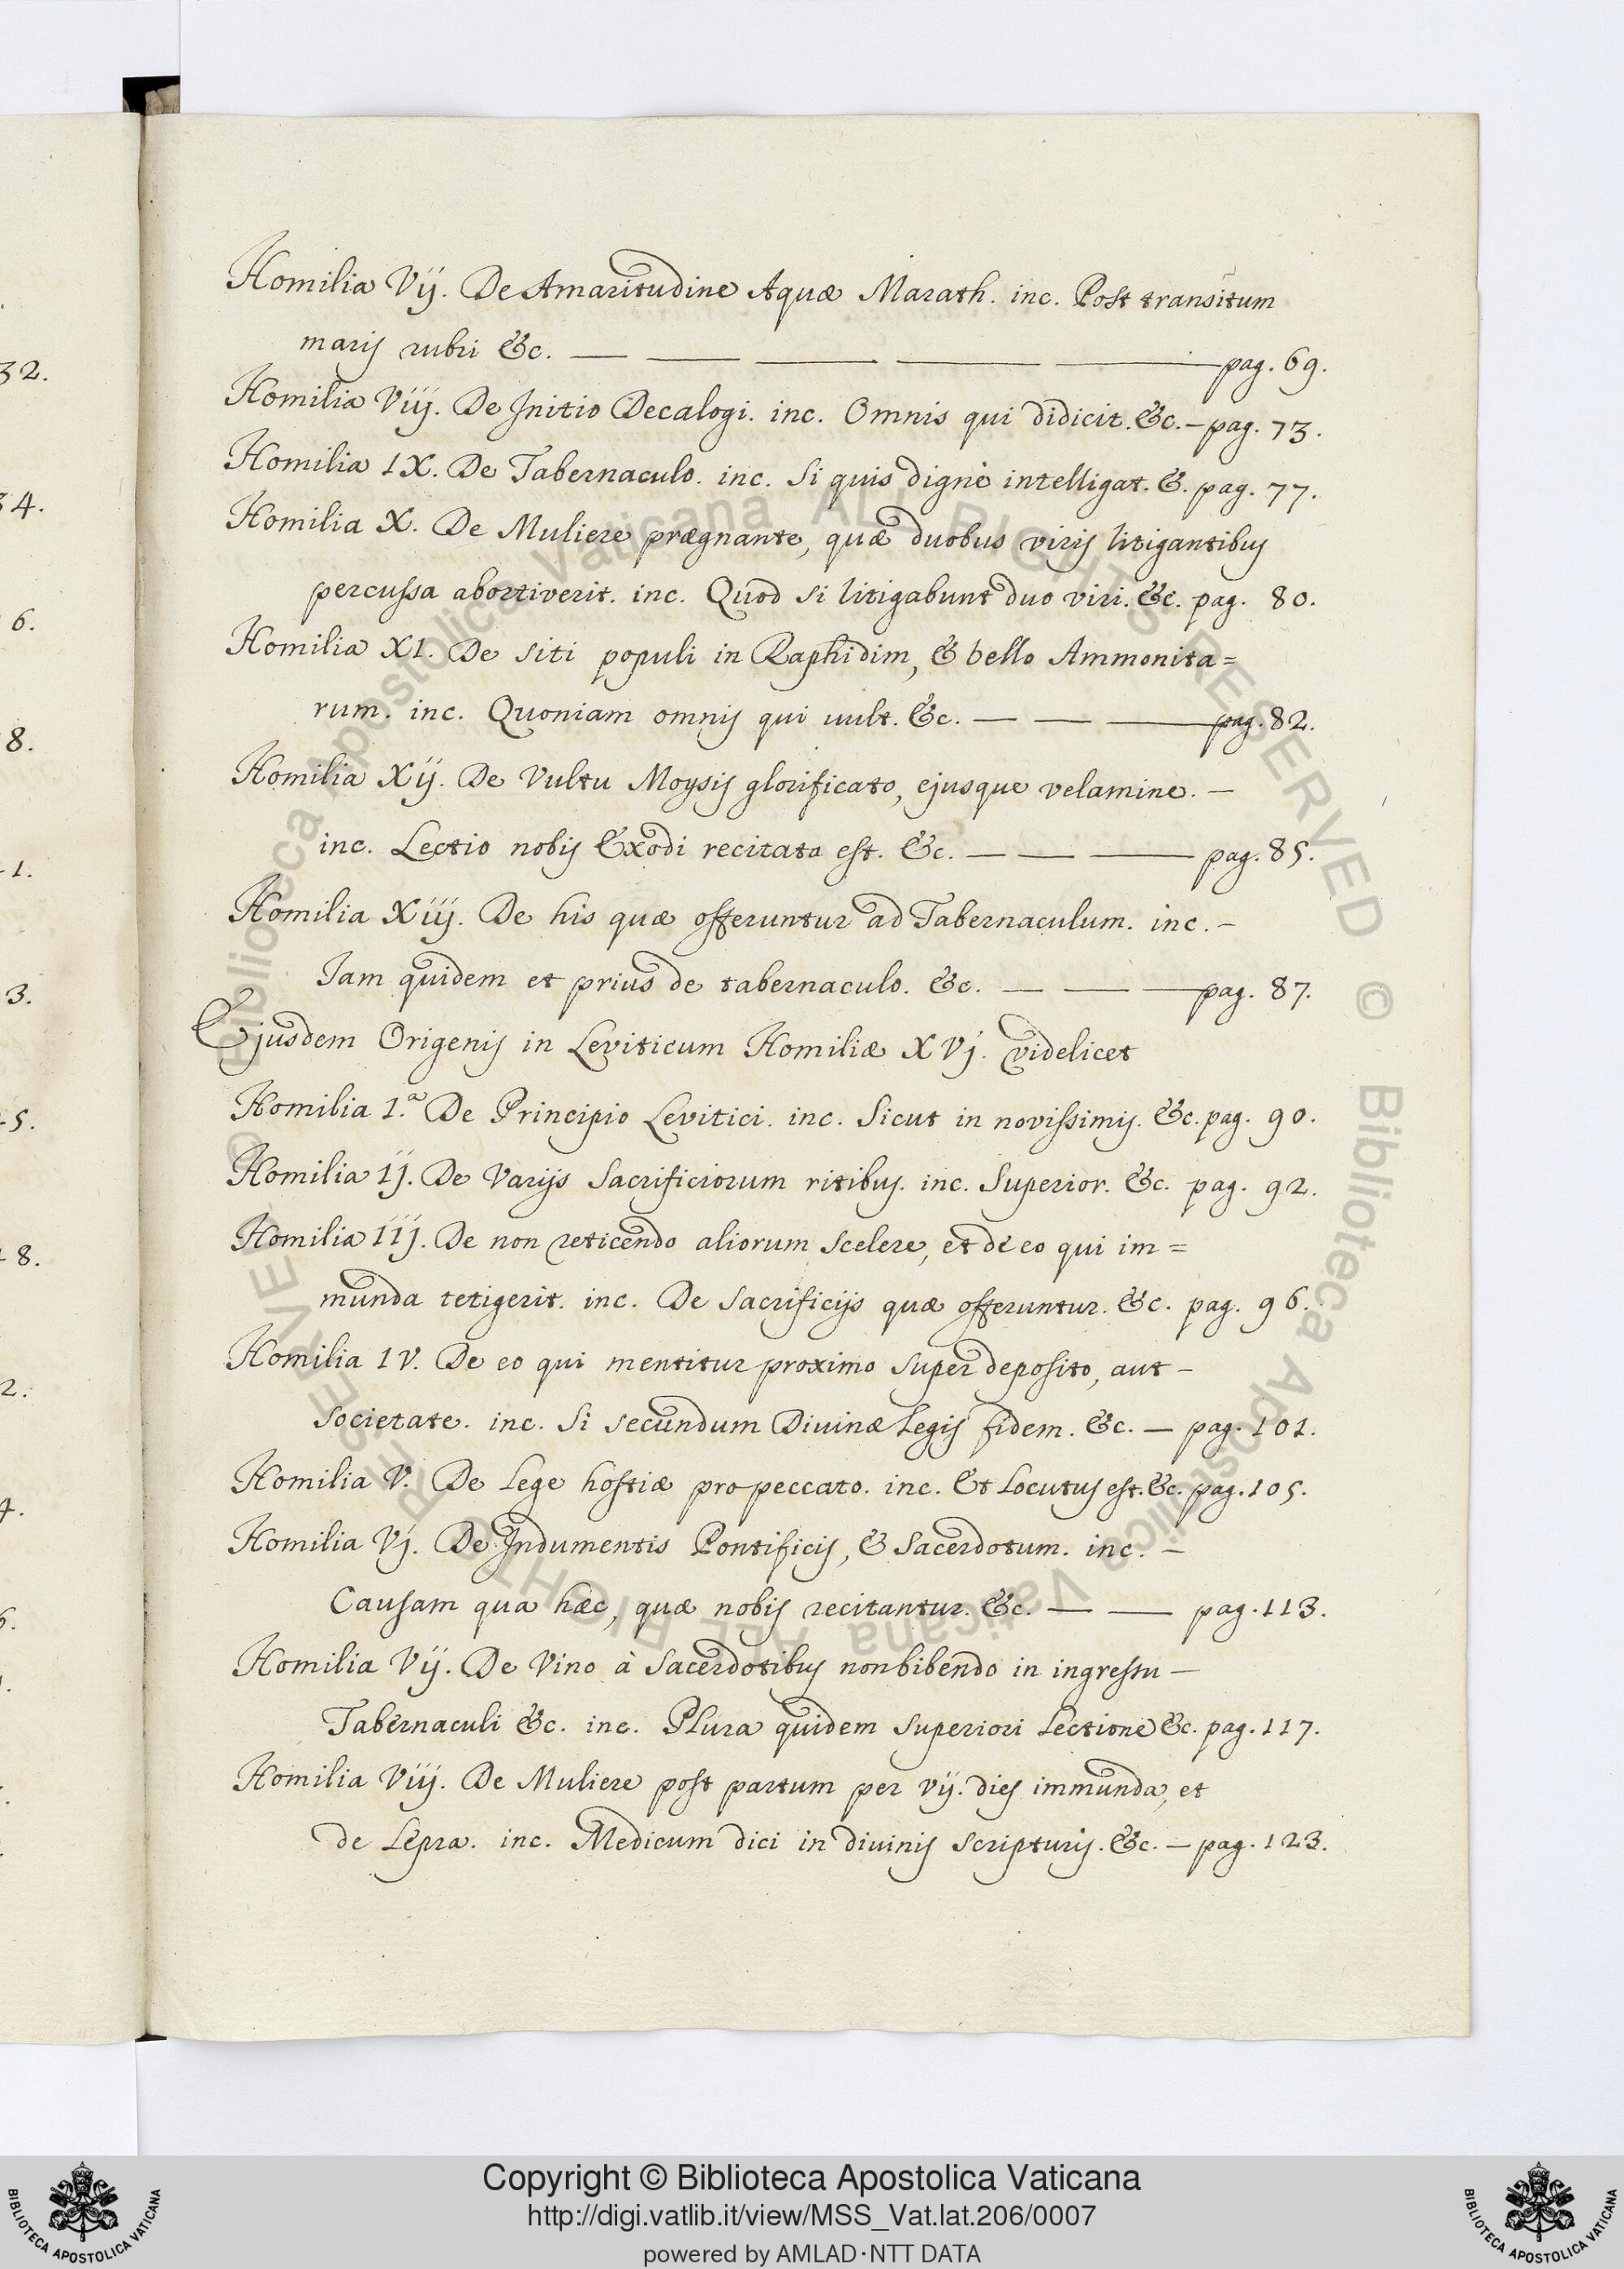 Homilia Vij. De Amaritudine Aquæ Marath. inc. Post transitum
maris rubri &c. — — — — — pag. 69.
Homilia Viij. De Initio Decalogi. inc. Omnis qui didicit. &c. — pag. 73.
Homilia IX. De Tabernaculo. inc. Si quis dignè intelligat. &. pag. 77.
Homilia X. De Muliere prægnante, quæ duobus viris litigantibus
percussa abortiverit. inc. Quod si litigabunt duo viri. &c. pag. 80.
Homilia XI. De siti populi in Raphidim, & bello Ammonita=
rum. inc. Quoniam omnis qui uult. &c. — — — pag. 82.
Homilia Xij. De Vultu Moysis glorificato, ejusque velamine. —
inc. Lectio nobis Exodi recitata est. &c. — — — pag. 85.
Homilia Xiij. De his quæ offeruntur ad Tabernaculum. inc. —
Iam quidem et prius de tabernaculo. &c. — — — pag. 87.
Ejusdem Origenis in Leviticum Homiliæ XVj. videlicet
Homilia I.ª De Principio Levitici. inc. Sicut in novissimis. &c. pag. 90.
Homilia Ij. De Varijs Sacrificiorum ritibus. inc. Superior. &c. pag. 92.
Homilia IIj. De non reticendo aliorum scelere, et de eo qui im=
munda tetigerit. inc. De Sacrificijs quæ offeruntur. &c. pag. 96.
Homilia IV. De eo qui mentitur proximo super deposito, aut —
societate. inc. Si secundum Diuinæ Legis fidem. &c. — pag. 101.
Homilia V. De Lege hostiæ pro peccato. inc. Et Locutus est. &c. pag. 105.
Homilia Vj. De Indumentis Pontificis, & Sacerdotum. inc. —
Causam qua hæc, quæ nobis recitantur. &c. — — pag. 113.
Homilia Vij. De Vino à Sacerdotibus non bibendo in ingressu —
Tabernaculi &c. inc. Plura quidem superiori Lectione &c. pag. 117.
Homilia Viij. De Muliere post partum per vij. dies immunda, et
de Lepra. inc. Medicum dici in diuinis scripturis. &c. — pag. 123.
32.
34.
6.
8.
1.
3.
5.
8.
2.
4.
6.
© Biblioteca Apostolica Vaticana ALL RIGHTS RESERVED © Biblioteca Apostolica Vaticana ALL RIGHTS RESERVED
Copyright © Biblioteca Apostolica Vaticana
http://digi.vatlib.it/view/MSS_Vat.lat.206/0007
powered by AMLAD·NTT DATA
BIBLIOTECA APOSTOLICA VATICANA
BIBLIOTECA APOSTOLICA VATICANA